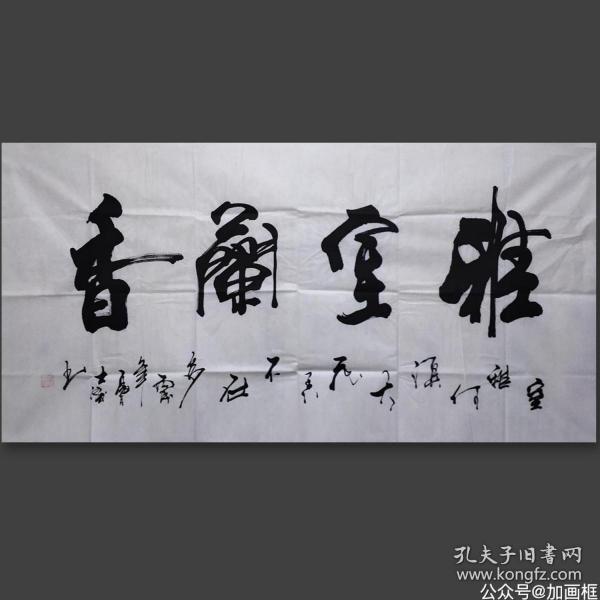 雅室蘭香
室雅何須大花香不在多
孔夫子旧书网
www.kongfz.com
公众号@加画框